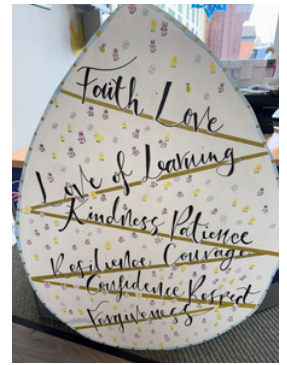 Faith Love
Love of Learning
Kindness Patience
Resilience Courage
Confidence Respect
Forgiveness